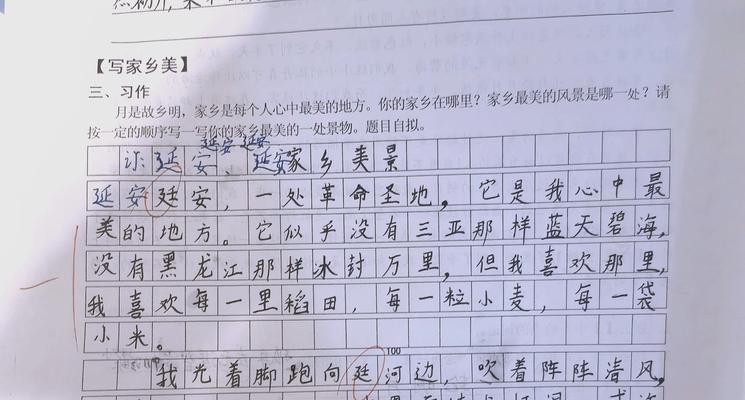 【写家乡美】
三、习作
月是故乡明，家乡是每个人心中最美的地方。你的家乡在哪里？家乡最美的风景是哪一处？请
按一定的顺序写一写你的家乡最美的一处景物。题目自拟。
延安 延安
延安、延安家乡美景
延安廷安，一处革命圣地，它是我心中最
美的地方。它似乎没有三亚那样蓝天碧海，
没有黑龙江那样冰封万里，但我喜欢那里，
我喜欢每一里稻田，每一粒小麦，每一袋
小米。
100
我光着脚跑向廷河边，吹着阵阵清风，